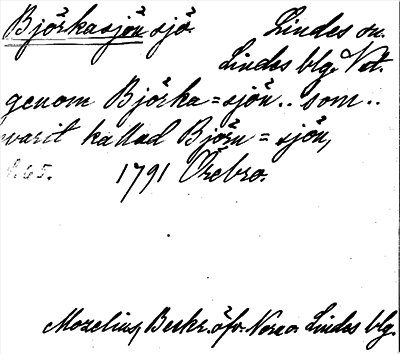 Björkasjön sjö. Lindes sn.
Lindes blg. Vstm.
genom Björka=sjön.. som..
varit kallad Björn=sjön,
s. 65. 1791 Örebro.
Mozelius, Beskr. öfv. Nora o. Lindes blg.